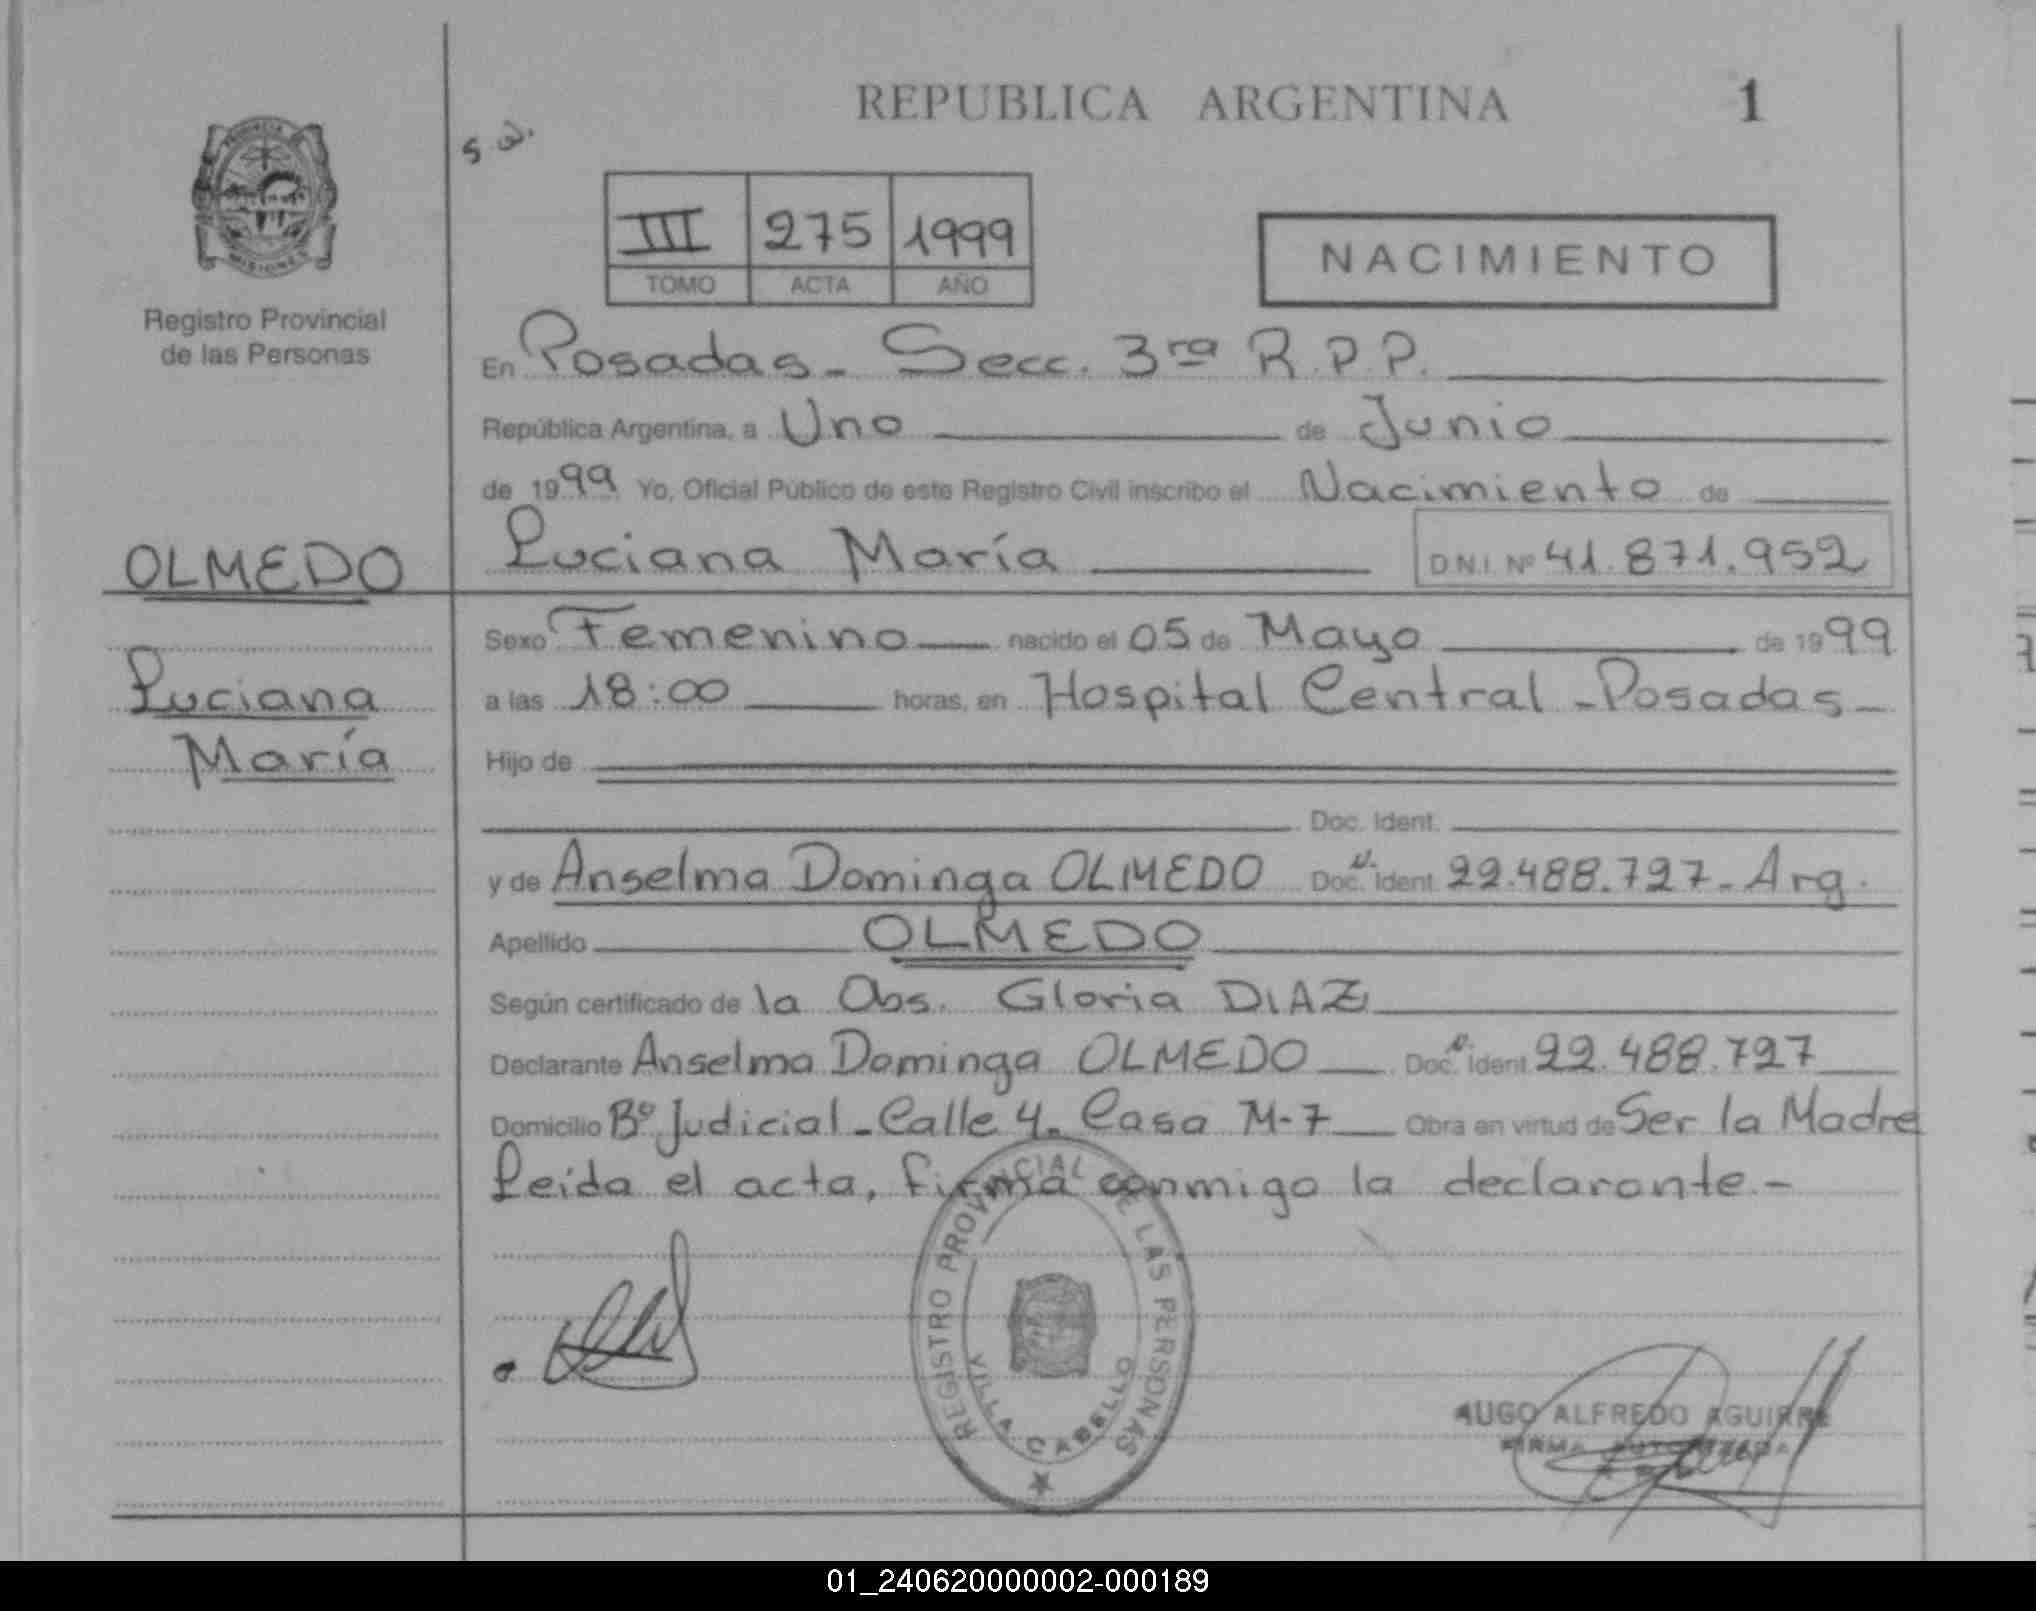 REPUBLICA ARGENTINA 1
PROVINCIA
MISIONES
Registro Provincial
de las Personas
III 275 1999
TOMO ACTA AÑO
NACIMIENTO
En Posadas - Secc. 3ra R.P.P.
República Argentina, a Uno de Junio
de 1999 Yo, Oficial Público de este Registro Civil inscribo el Nacimiento de
OLMEDO
Luciana
María
Luciana María D.N.I. Nº 41.871.952
Sexo Femenino nacido el 05 de Mayo de 1999
a las 18:00 horas, en Hospital Central - Posadas -
Hijo de
Doc. Ident.
y de Anselma Dominga OLMEDO Doc. Ident. 22.488.727 - Arg.
Apellido OLMEDO
Según certificado de la Obs. Gloria DIAZ
Declarante Anselma Dominga OLMEDO Doc. Ident. 22.488.727
Domicilio Bº Judicial - Calle 4 - Casa M-7 Obra en virtud de Ser la Madre
Leída el acta, firma conmigo la declarante.-
REGISTRO PROVINCIAL DE LAS PERSONAS
VILLA CABELLO
HUGO ALFREDO AGUIRRE
FIRMA AUTORIZADA
01_240620000002-000189